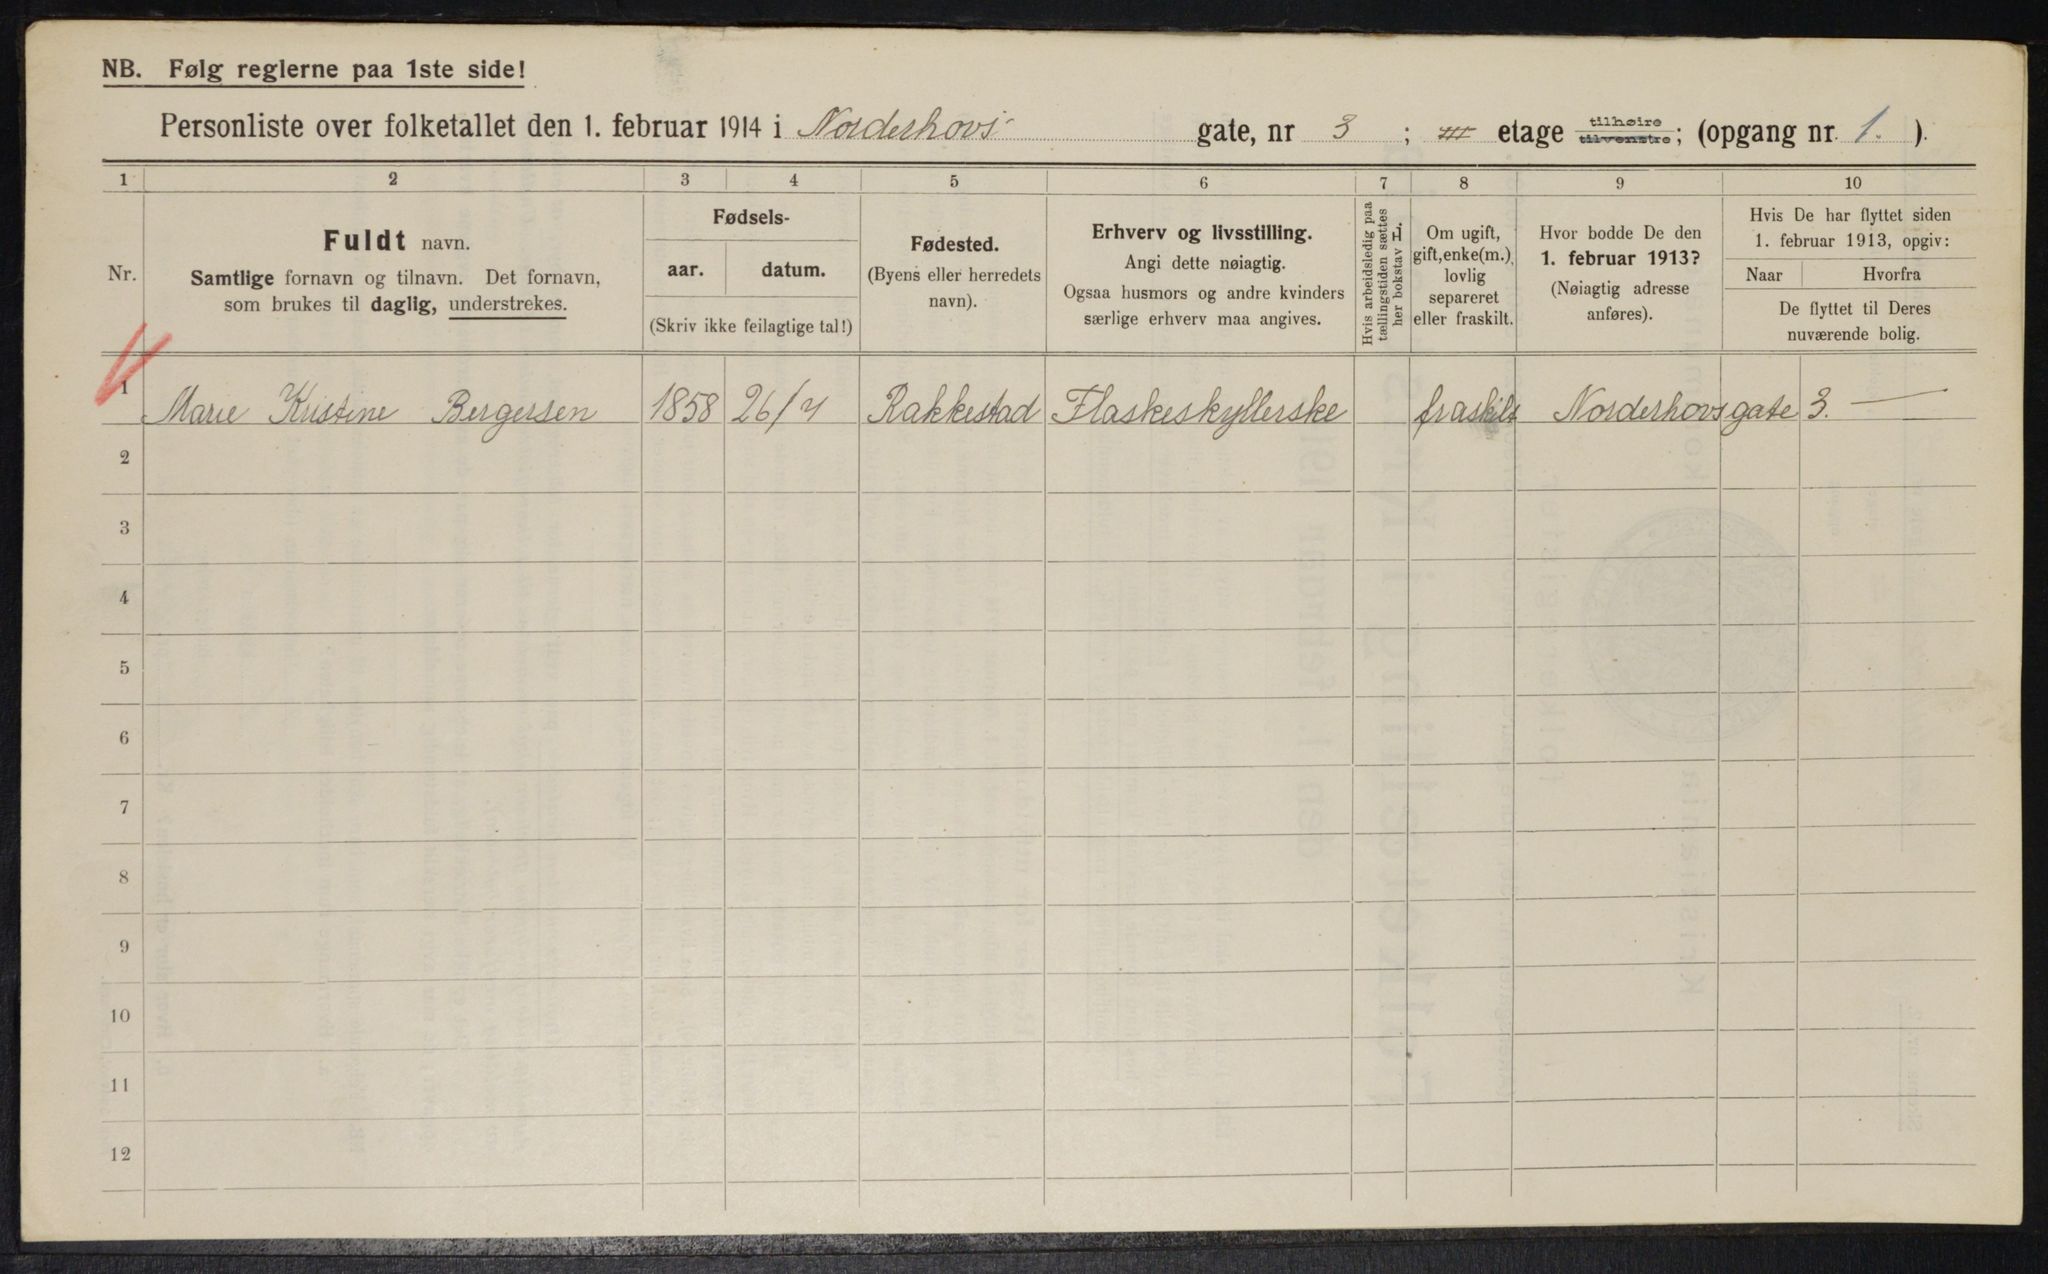 NB. Følg reglerne paa 1ste side!
Personliste over folketallet den 1. februar 1914 i Norderhovs gate, nr 3 ; III etage tilhøire tilvenstre; (opgang nr. 1. ).
1 2 3 4 5 6 7 8 9 10
Nr.
Fuldt navn.
Samtlige fornavn og tilnavn. Det fornavn,
som brukes til daglig, understrekes.
Fødsels-
aar. datum.
(Skriv ikke feilagtige tal!)
Fødested.
(Byens eller herredets
navn).
Erhverv og livsstilling.
Angi dette nøiagtig.
Ogsaa husmors og andre kvinders
særlige erhverv maa angives.
Hvis arbeidsledig paa
tællingstiden sættes
her bokstav L.
Om ugift,
gift, enke(m.),
lovlig
separeret
eller fraskilt.
Hvor bodde De den
1. februar 1913?
(Nøiagtig adresse
anføres).
Hvis De har flyttet siden
1. februar 1913, opgiv:
Naar Hvorfra
De flyttet til Deres
nuværende bolig.
1 Marie Kristine Bergersen 1858 26/7 Rakkestad Flaskeskyllerske fraskilt Norderhovsgate 3. —
2
3
4
5
6
7
8
9
10
11
12